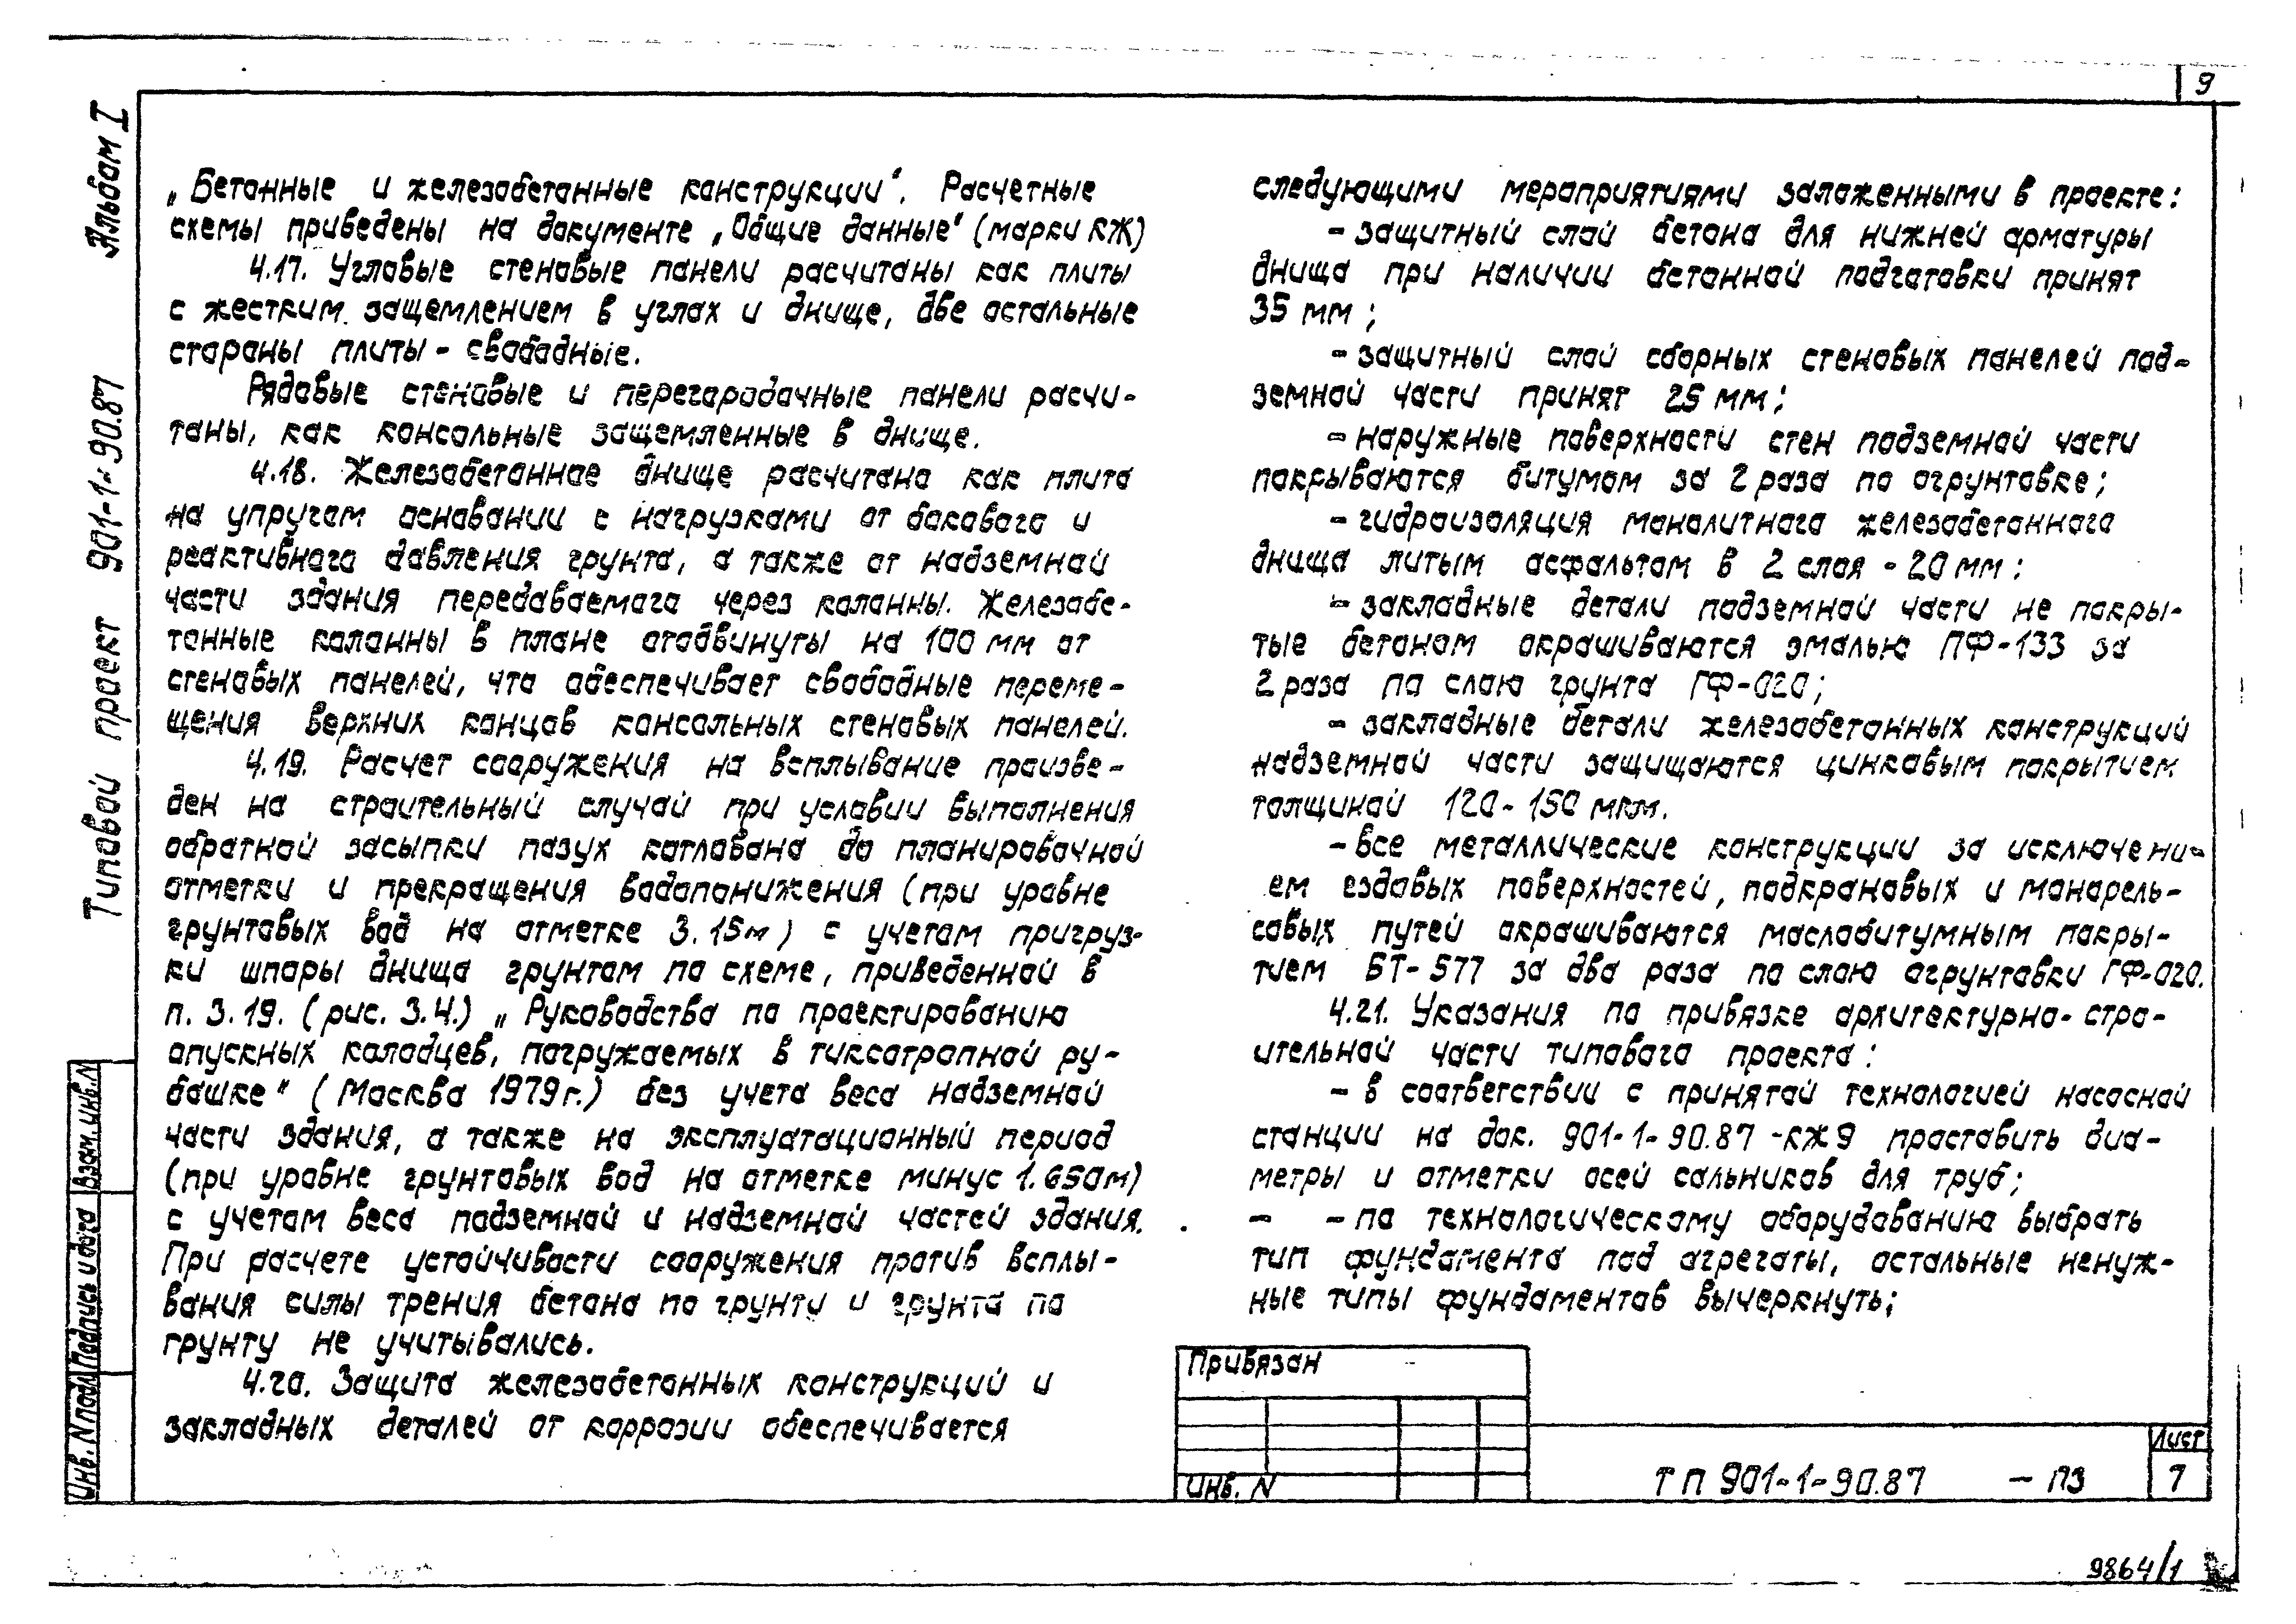 9
Альбом I
Типовой проект 901-1-90.87
„Бетонные и железобетонные конструкции“. Расчетные
схемы приведены на документе „Общие данные“ (марки КЖ)
4.17. Угловые стеновые панели расчитаны как плиты
с жестким защемлением в углах и днище, две остальные
стороны плиты - свободные.
Рядовые стеновые и перегородочные панели расчи-
таны, как консольные защемленные в днище.
4.18. Железобетонное днище расчитано как плита
на упругом основании с нагрузками от бокового и
реактивного давления грунта, а также от надземной
части здания передаваемого через колонны. Железобе-
тонные колонны в плане отодвинуты на 100 мм от
стеновых панелей, что обеспечивает свободные переме-
щения верхних концов консольных стеновых панелей.
4.19. Расчет сооружения на всплывание произве-
ден на строительный случай при условии выполнения
обратной засыпки пазух котлована до планировочной
отметки и прекращения водопонижения (при уровне
грунтовых вод на отметке 3.15м) с учетом пригруз-
ки шпоры днища грунтом по схеме, приведенной в
п. 3.19. (рис. 3.4.) „Руководства по проектированию
опускных колодцев, погружаемых в тиксотропной ру-
башке“ (Москва 1979г.) без учета веса надземной
части здания, а также на эксплуатационный период
(при уровне грунтовых вод на отметке минус 1.650м)
с учетом веса подземной и надземной частей здания.
При расчете устойчивости сооружения против всплы-
вания силы трения бетона по грунту и грунта по
грунту не учитывались.
4.20. Защита железобетонных конструкций и
закладных деталей от коррозии обеспечивается
следующими мероприятиями заложенными в проекте:
- защитный слой бетона для нижней арматуры
днища при наличии бетонной подготовки принят
35 мм;
- защитный слой сборных стеновых панелей под-
земной части принят 25 мм;
- наружные поверхности стен подземной части
покрываются битумом за 2 раза по огрунтовке;
- гидроизоляция монолитного железобетонного
днища литым асфальтом в 2 слоя - 20 мм;
- закладные детали подземной части не покры-
тые бетоном окрашиваются эмалью ПФ-133 за
2 раза по слою грунта ГФ-020;
- закладные детали железобетонных конструкций
надземной части защищаются цинковым покрытием
толщиной 120-150 мкм.
- все металлические конструкции за исключени-
ем ездовых поверхностей, подкрановых и монорель-
совых путей окрашиваются маслобитумным покры-
тием БТ-577 за два раза по слою огрунтовки ГФ-020.
4.21. Указания по привязке архитектурно-стро-
ительной части типового проекта:
- в соответствии с принятой технологией насосной
станции на док. 901-1-90.87 -КЖ9 проставить диа-
метры и отметки осей сальников для труб;
- - по технологическому оборудованию выбрать
тип фундамента под агрегаты, остальные ненуж-
ные типы фундаментов вычеркнуть;
Привязан
Инв. N
ТП 901-1-90.87 - ПЗ
Лист
7
Инв. N подл
Подпись и дата
Взам. инв. N
9864/1